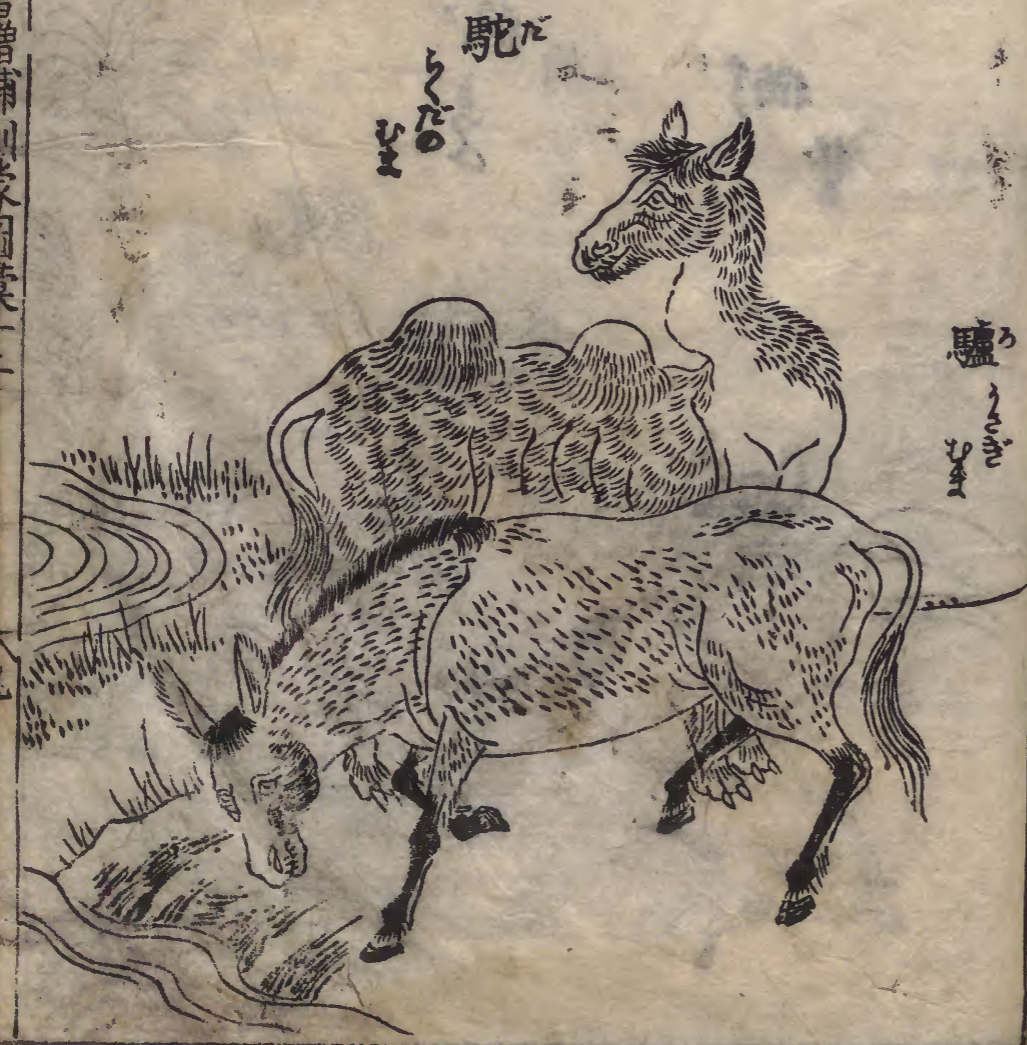 驢 ろ
うさぎ
むま
駝 だ
らくだの
むま
増補訓蒙図彙十二